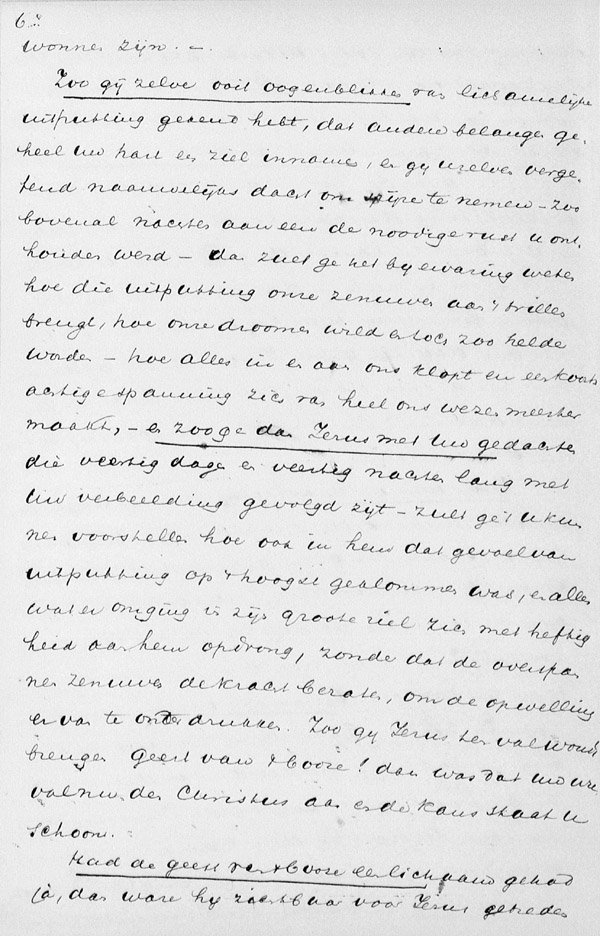 63
wonnen zijn. –.
Zoo gij zelve ooit oogenblikken van lichamelijke
uitputting gekend hebt, dat andere belangen ge-
heel uw hart en ziel innamen, en gij uzelven verge-
tend naauwelijks dacht om spijze te nemen – zoo
bovenal nachten aaneen de noodige rust u ont-
houden werd – dan zult ge het bij ervaring weten
hoe die uitputting onze zenuwen aan 't trillen
brengt, hoe onze droomen wild en toch zoo helde
worden – hoe alles in en aan ons klopt en een koorts
achtige spanning zich van heel ons wezen meester
maakt, – en zoo ge dan Jezus met uw gedachten
die veertig dagen en veertig nachten lang met
uw verbeelding gevolgd zijt – zult ge 't u kun
nen voorstellen hoe ook in hem dat gevoel van
uitputting op 't hoogst geklommen was, en alles
wat er omging in zijn groote ziel zich met heftig
heid aan hem opdrong, zonde dat de overspan
nen zenuwen de kracht bezaten, om de opwelling
er van te onderdrukken. Zoo gij Jezus ten val woudt
brengen geest van 't booze! dan was dat uw ure
val nu den Christus aan en de kans staat u
schoon.
Had de geest van 't booze een lichaam gehad
ja, dan ware hij zichtbaar voor Jezus getreden